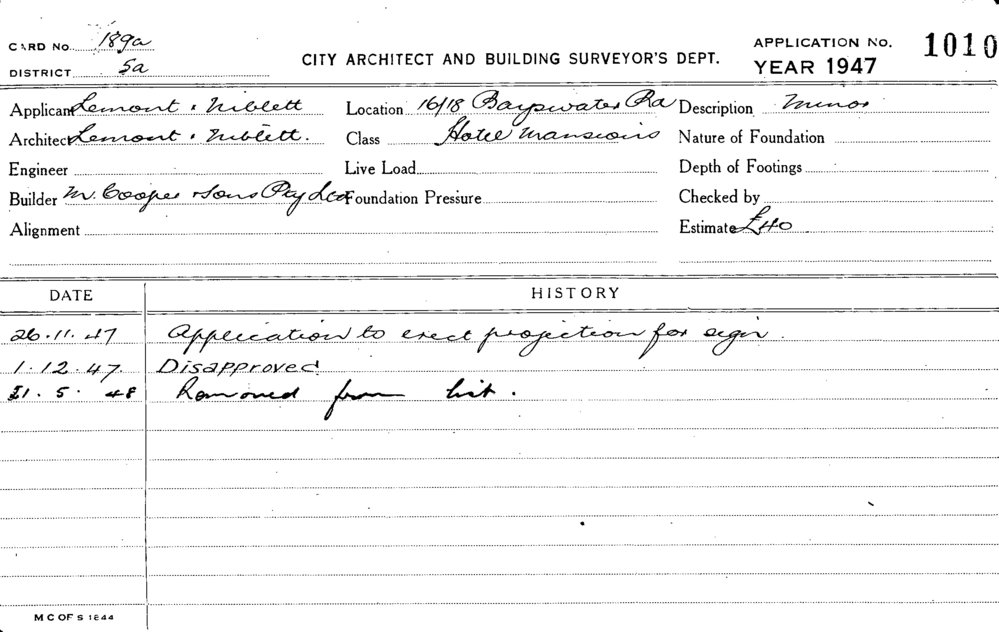 CARD No. 189a CITY ARCHITECT AND BUILDING SURVEYOR'S DEPT. APPLICATION No. 1010
DISTRICT 5a YEAR 1947
Applicant Lemont & Niblett Location 16/18 Bayswater Rd Description Minor
Architect Lemont & Niblett. Class Hotel Mansions Nature of Foundation
Engineer Live Load Depth of Footings
Builder M. Cooper & Sons Pty Ltd Foundation Pressure Checked by
Alignment Estimate £40
DATE HISTORY
26.11.47 Application to erect projection for sign.
1.12.47. Disapproved
21.5.48 Removed from list.
M C OF S 1844